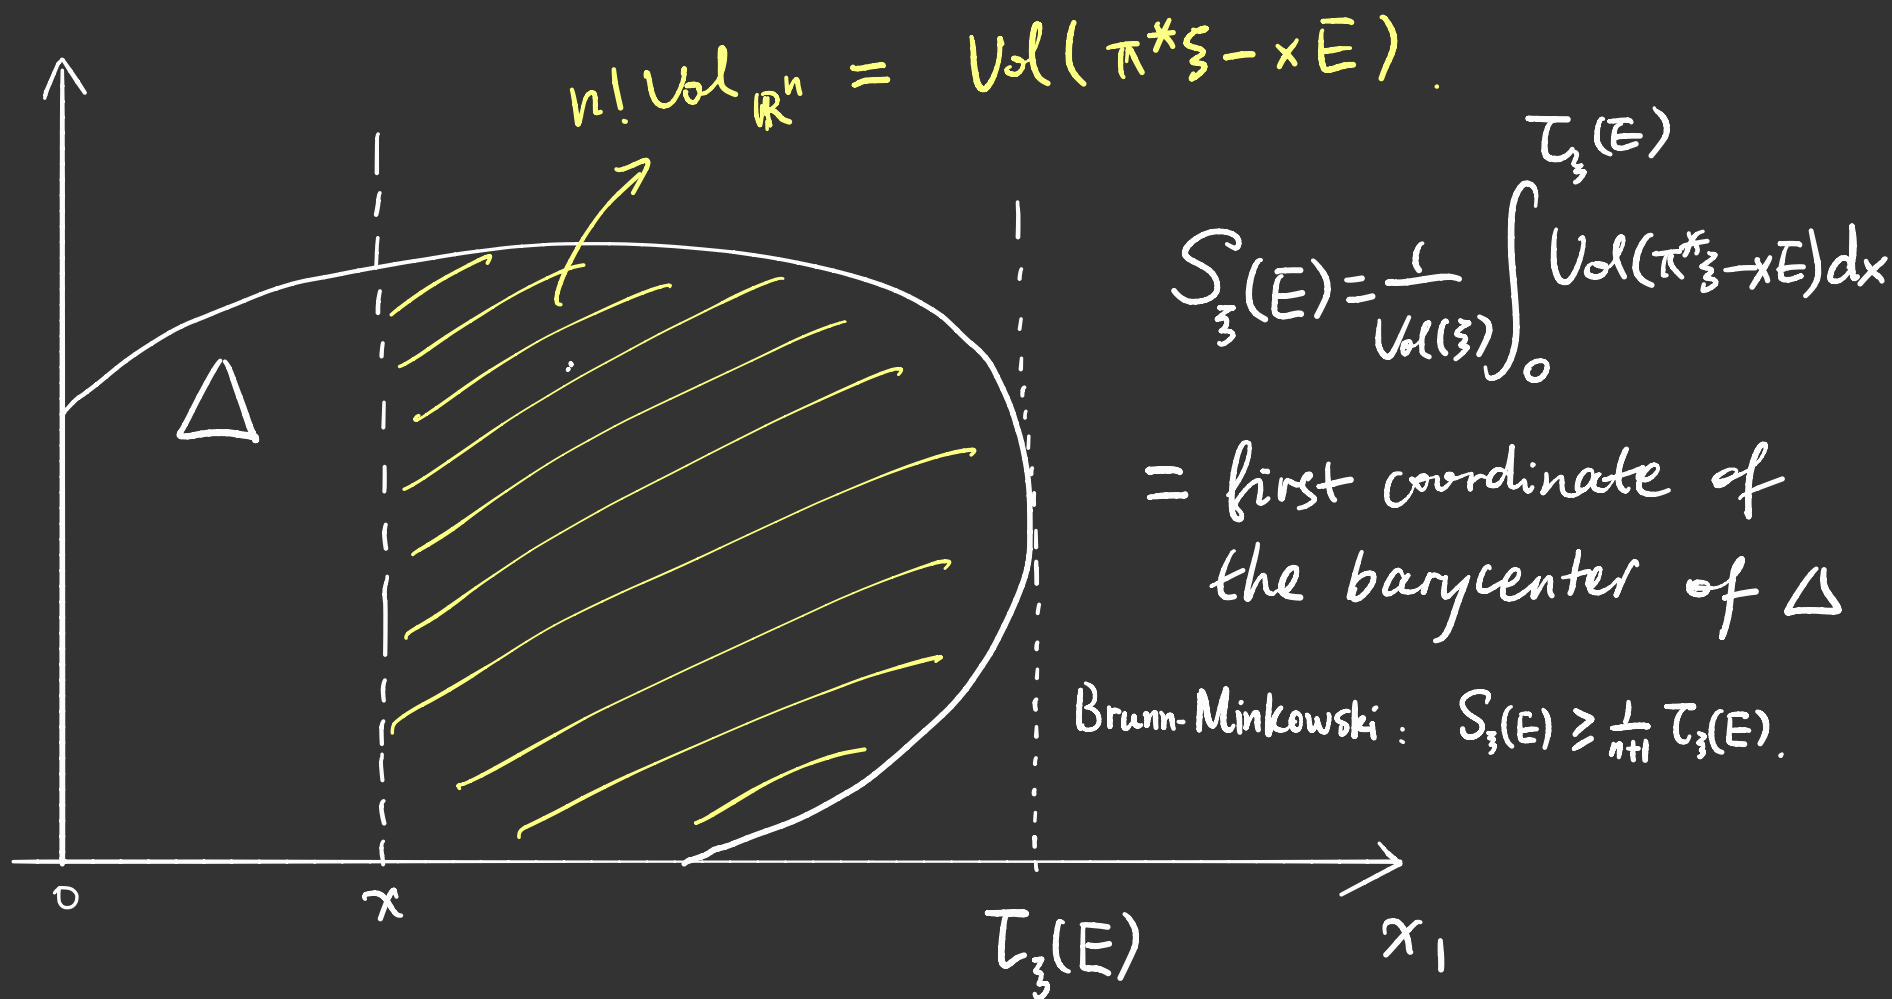 n! Vol_{ℝⁿ} = Vol(π*ξ - xE).
τ_ξ(E)
S_ξ(E) = 1/Vol(ξ) ∫₀ Vol(π*ξ - xE)dx
Δ
= first coordinate of
the barycenter of Δ
Brunn-Minkowski: S_ξ(E) ≥ 1/(n+1) τ_ξ(E).
0 x τ_ξ(E) x₁